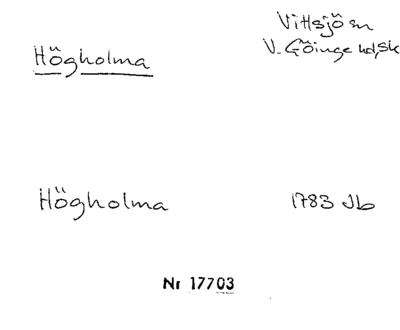 Högholma
Vittsjö sn
V. Göinge hd, Sk
Högholma
1783 Jb
Nr 17703